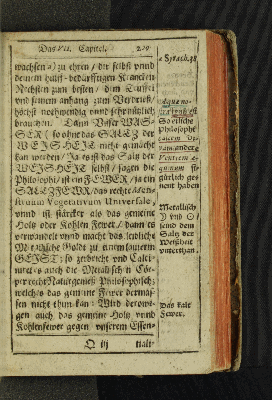 Das VII. Capitel.
wachsen) zu ehren / dir selbst vnnd
deinem hülff-bedürfftigen krancken
Nechsten zum besten / dem Teuffel
vnd seinem anhang zum Verdrieß /
höchst nothwendig vnnd ersprießlich
brauchen. Dann Wasser WAS-
SER / so ohne das SALTZ der
WEISHEIT nicht gemacht
kan werden / Ja es ist das Saltz der
WEISHEIT selbst / sagen die
Philosophi / ist ein FEWER / ja ein
SALTZFEWR / das rechte
Vegetativum Universale,
vnnd ist stärcker als das gemeine
Holtz oder Kohlen Fewer / dann es
verwandelt vnnd macht das leibliche
Goldt zu einem lautern
GEIST: so zerbricht vnd Calci-
niret es auch die Metallischen Cör-
per recht Naturgemeß Philosophisch;
welches das gemeine Fewer dermas-
sen nicht thun kan: Wird derowe-
gen auch das gemeine Holtz vnnd
Kohlenfewer gegen vnserem Essen-
O iij
tiali-
Syrach. 38.
So etliche
Philosophi
Ventrem
gürlich ge-
nent haben
Metallisch
seind dem
Saltz der
Weißheit
vnterthan.
Das kalt
Fewer.